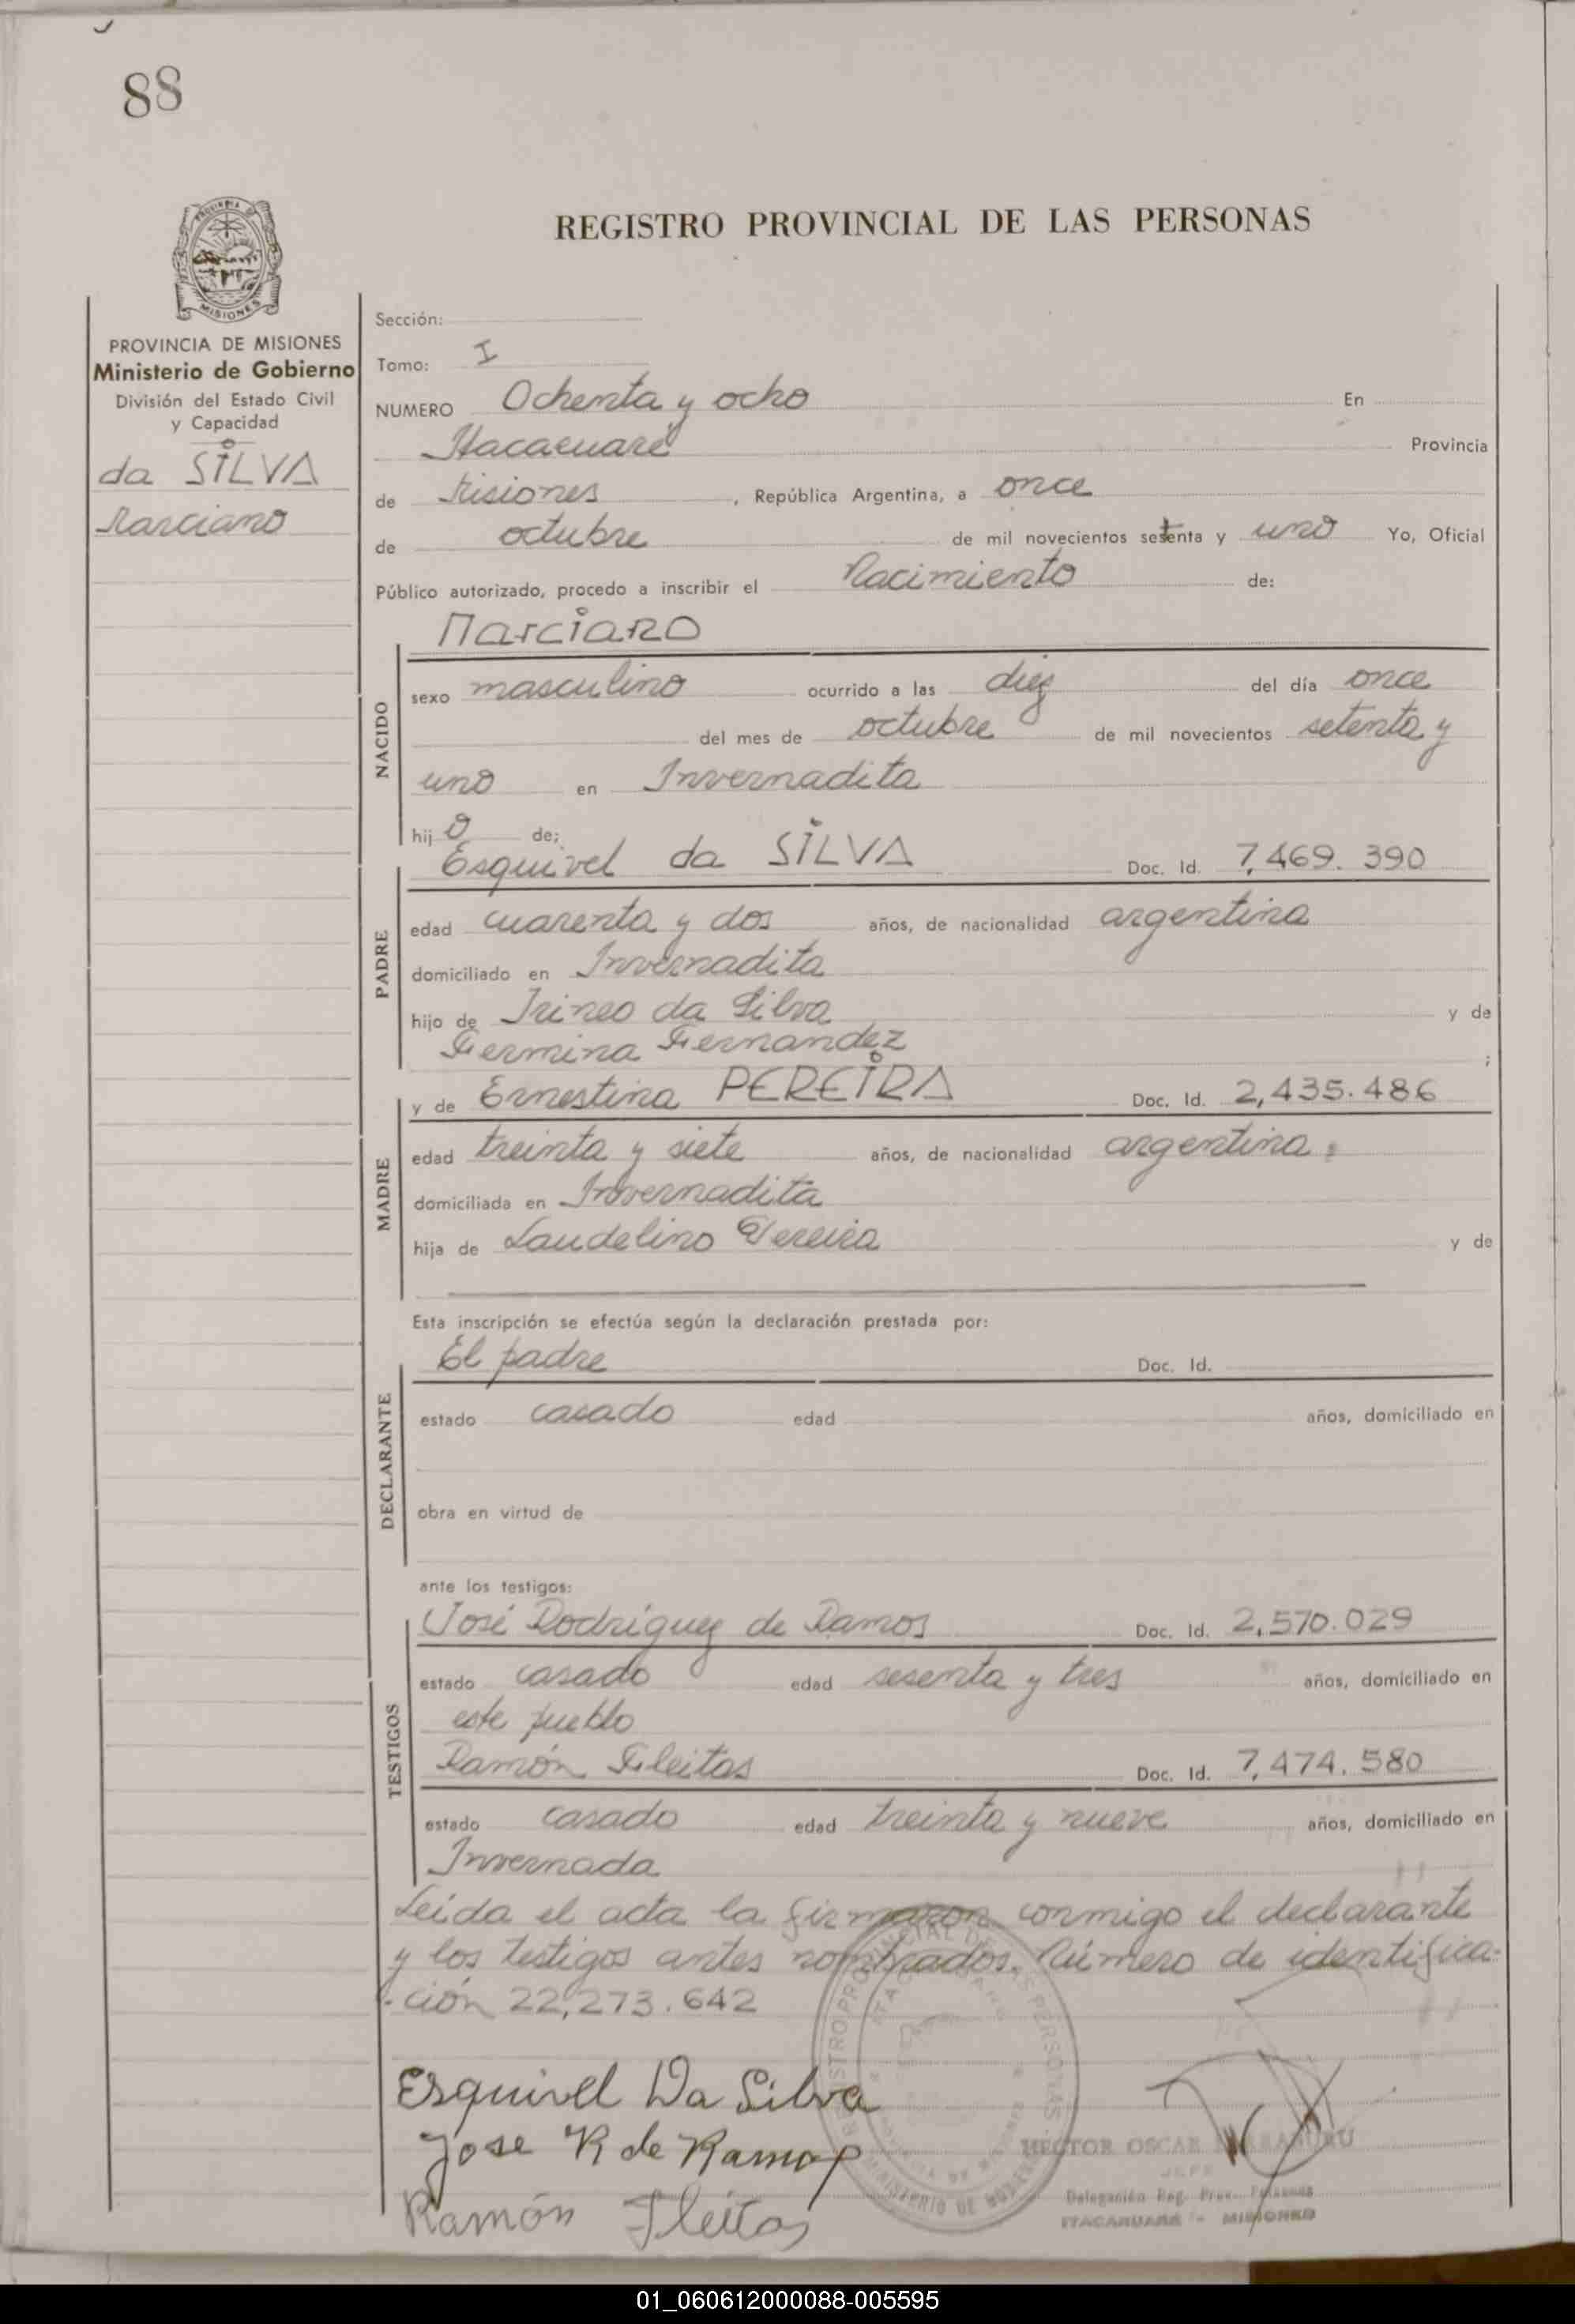 88
REGISTRO PROVINCIAL DE LAS PERSONAS
PROVINCIA DE MISIONES
Ministerio de Gobierno
División del Estado Civil
y Capacidad
da SILVA
Marciano
Sección:
Tomo: I
NUMERO Ochenta y ocho En
Itacaruaré Provincia
de Misiones, República Argentina, a once
de octubre de mil novecientos setenta y uno Yo, Oficial
Público autorizado, procedo a inscribir el Nacimiento de:
Marciano
NACIDO
sexo masculino ocurrido a las diez del día once
del mes de octubre de mil novecientos setenta y
uno en Invernadita
hijo de:
Esquivel da SILVA Doc. Id. 7,469.390
PADRE
edad cuarenta y dos años, de nacionalidad argentina
domiciliado en Invernadita
hijo de Irineo da Silva y de
Fermina Fernandez ;
y de Ernestina PEREIRA Doc. Id. 2,435.486
MADRE
edad treinta y siete años, de nacionalidad argentina
domiciliada en Invernadita
hija de Laudelino Pereira y de
Esta inscripción se efectúa según la declaración prestada por:
El padre Doc. Id.
DECLARANTE
estado casado edad años, domiciliado en
obra en virtud de
ante los testigos:
José Rodriguez de Ramos Doc. Id. 2,570.029
TESTIGOS
estado casado edad sesenta y tres años, domiciliado en
este pueblo
Ramón Fleitas Doc. Id. 7,474.580
estado casado edad treinta y nueve años, domiciliado en
Invernada
Leida el acta la firmaron conmigo el declarante
y los testigos antes nombrados. Número de identifica-
-ción 22,273.642
Esquivel Da Silva
Jose R de Ramos
Ramón Fleitas
HECTOR OSCAR
JEFE
Delegación Reg. Prov. Personas
ITACARUARE - MISIONES
01_060612000088-005595